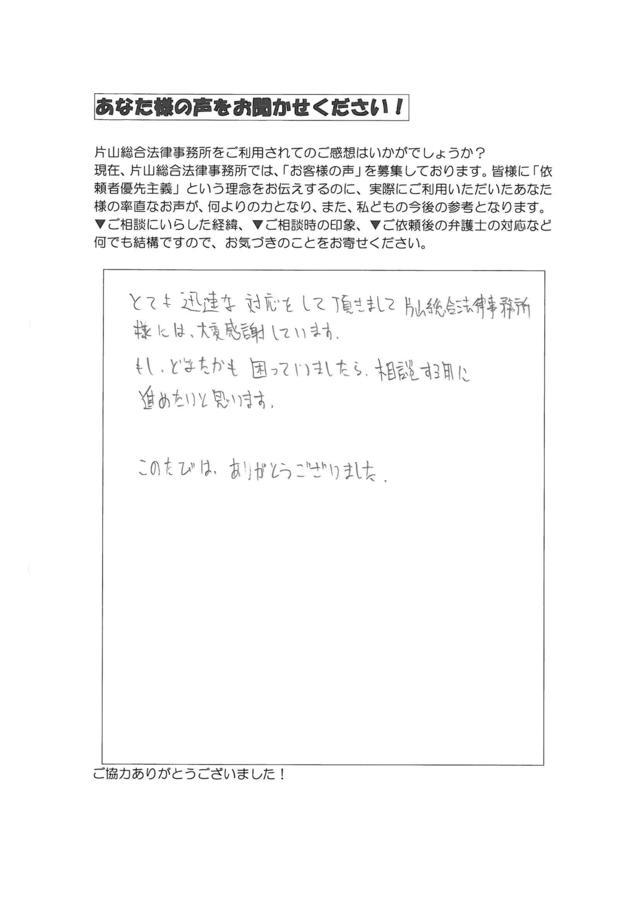 あなた様の声をお聞かせください！
片山総合法律事務所をご利用されてのご感想はいかがでしょうか？
現在、片山総合法律事務所では、「お客様の声」を募集しております。皆様に「依
頼者優先主義」という理念をお伝えするのに、実際にご利用いただいたあなた
様の率直なお声が、何よりの力となり、また、私どもの今後の参考となります。
▼ご相談にいらした経緯、▼ご相談時の印象、▼ご依頼後の弁護士の対応など
何でも結構ですので、お気づきのことをお寄せください。
とても 迅速な 対応をして頂きまして 片山総合法律事務所
様には、大変感謝しています。
もし、どなたかも 困っていましたら、相談する用に
進めたいと思います。
このたびは、ありがとうございました。
ご協力ありがとうございました！